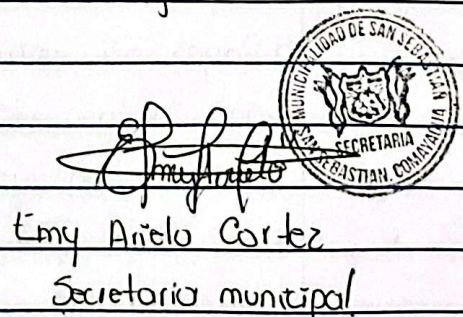 MUNICIPALIDAD DE SAN SEBASTIAN
SECRETARIA
SAN SEBASTIAN, COMAYAGUA
Emy Arielo Cortez
Secretario municipal